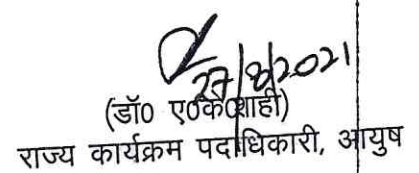 27/8/2021
(डॉ0 ए0के0शाही)
राज्य कार्यक्रम पदाधिकारी, आयुष